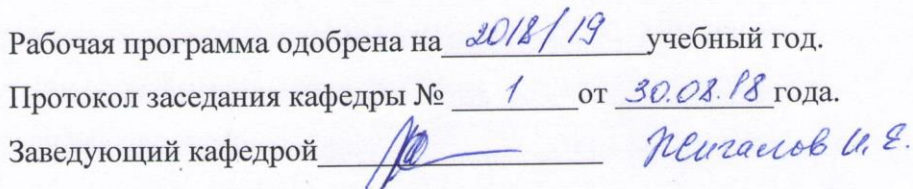 Рабочая программа одобрена на 2018/19 учебный год.
Протокол заседания кафедры № 1 от 30.08.18 года.
Заведующий кафедрой Жигалов И.Е.